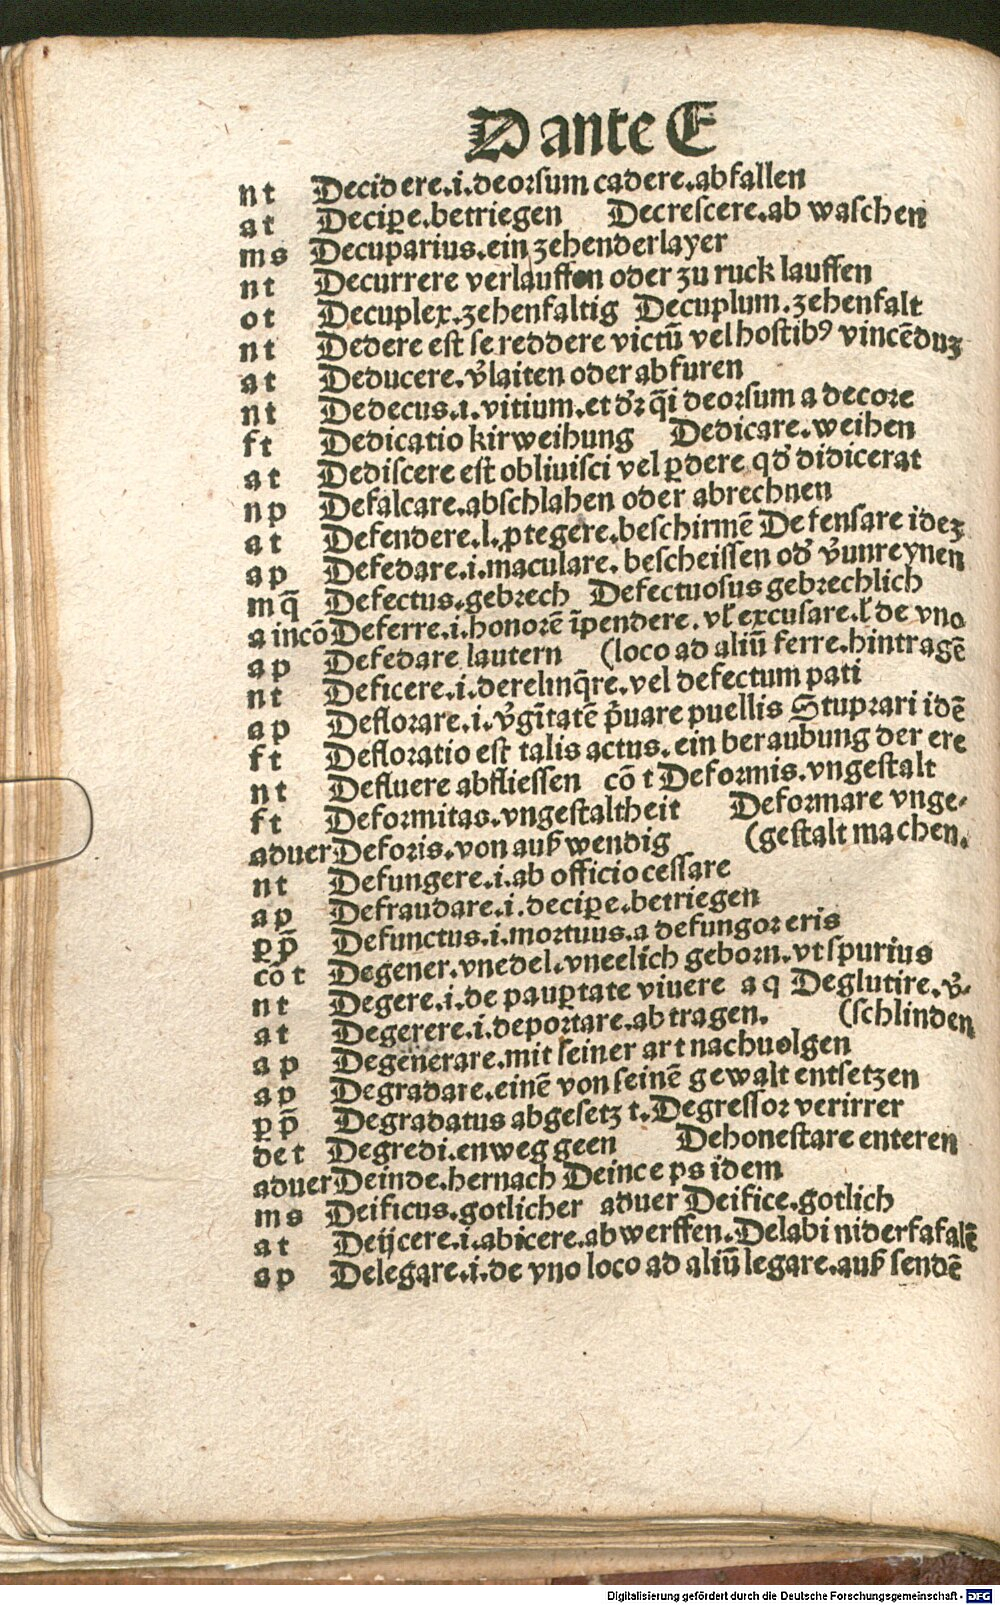 D ante E
nt Decidere.i.deorsum cadere.abfallen
at Decipe.betriegen Decrescere.ab waschen
ms Decuparius.ein zehenderlayer
nt Decurrere verlauffen oder zu ruck lauffen
ot Decuplex.zehenfaltig Decuplum.zehenfalt
nt Dedere est se reddere victū vel hostibꝯ vincēduꝫ
at Deducere.v̄laiten oder abfuren
nt Dedecus.i.vitium.et dr̄ q̄i deorsum a decore
ft Dedicatio kirweihung Dedicare.weihen
at Dediscere est obliuisci vel ꝑdere qđ didicerat
np Defalcare.abschlahen oder abrechnen
at Defendere.l.ꝓtegere.beschirmē Defensare ideꝫ
ap Defedare.i.maculare.bescheissen ođ v̄unreynen
mq̄ Defectus.gebrech Defectuosus gebrechlich
a incō Deferre.i.honorē īpendere.vł excusare.ł de vno
ap Defedare lautern (loco ad aliū ferre.hintragē
nt Deficere.i.derelinq̄re.vel defectum pati
ap Deflorare.i.v̄gītatē p̄uare puellis Stuprari idē
ft Defloratio est talis actus.ein beraubung der ere
nt Defluere abfliessen cō t Deformis.vngestalt
ft Deformitas.vngestaltheit Deformare vnge⸗
aduer Deforis.von auß wendig (gestalt machen.
nt Defungere.i.ab officio cessare
ap Defraudare.i.decipe.betriegen
ꝑp̄ Defunctus.i.mortuus.a defungor eris
cō t Degener.vnedel.vneelich geborn.vt spurius
nt Degere.i.de pauꝑtate viuere a q Deglutire.v̄⸗
at Degerere.i.deportare.abtragen. (schlinden
ap Degenerare.mit seiner art nachuolgen
ap Degradare.einē von seinē gewalt entsetzen
ꝑp̄ Degradatus abgesetz t.Degressor verirrer
de t Degredi.enweg geen Dehonestare enteren
aduer Deinde.hernach Deince ps idem
ms Deificus.gotlicher aduer Deifice.gotlich
at Deijcere.i.abicere.abwerffen.Delabi niderfafalē
ap Delegare.i.de vno loco ad aliū legare.auß sendē
Digitalisierung gefördert durch die Deutsche Forschungsgemeinschaft - DFG